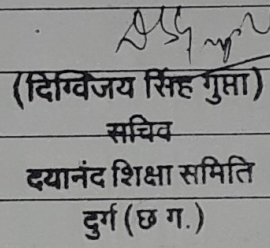 (दिग्विजय सिंह गुप्ता)
सचिव
दयानंद शिक्षा समिति
दुर्ग (छ ग.)